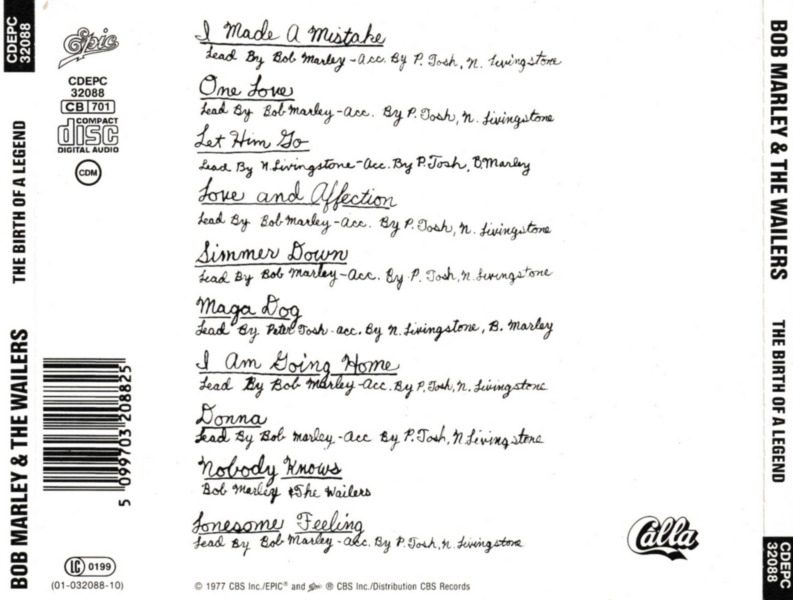 CDEPC
32088
THE BIRTH OF A LEGEND
BOB MARLEY & THE WAILERS
Epic
CDEPC
32088
CB 701
COMPACT
disc
DIGITAL AUDIO
CDM
5 099703 208825
LC 0199
(01-032088-10)
I Made A Mistake
Lead By Bob Marley-Acc. By P. Tosh, N. Livingstone
One Love
Lead By Bob Marley-Acc. By P. Tosh, N. Livingstone
Let Him Go
Lead By N. Livingstone-Acc. By P. Tosh, B. Marley
Love and Affection
Lead By Bob Marley-Acc. By P. Tosh, N. Livingstone
Simmer Down
Lead By Bob Marley-Acc. By P. Tosh, N. Livingstone
Maga Dog
Lead By Peter Tosh-acc. By N. Livingstone, B. Marley
I Am Going Home
Lead By Bob Marley-Acc. By P. Tosh, N. Livingstone
Donna
Lead By Bob Marley-Acc By P. Tosh, N Livingstone
Nobody Knows
Bob Marley & The Wailers
Lonesome Feeling
Lead By Bob Marley-Acc. By P. Tosh, N. Livingstone
© 1977 CBS Inc./EPIC® and Epic ® CBS Inc./Distribution CBS Records
Calla
BOB MARLEY & THE WAILERS
THE BIRTH OF A LEGEND
CDEPC
32088